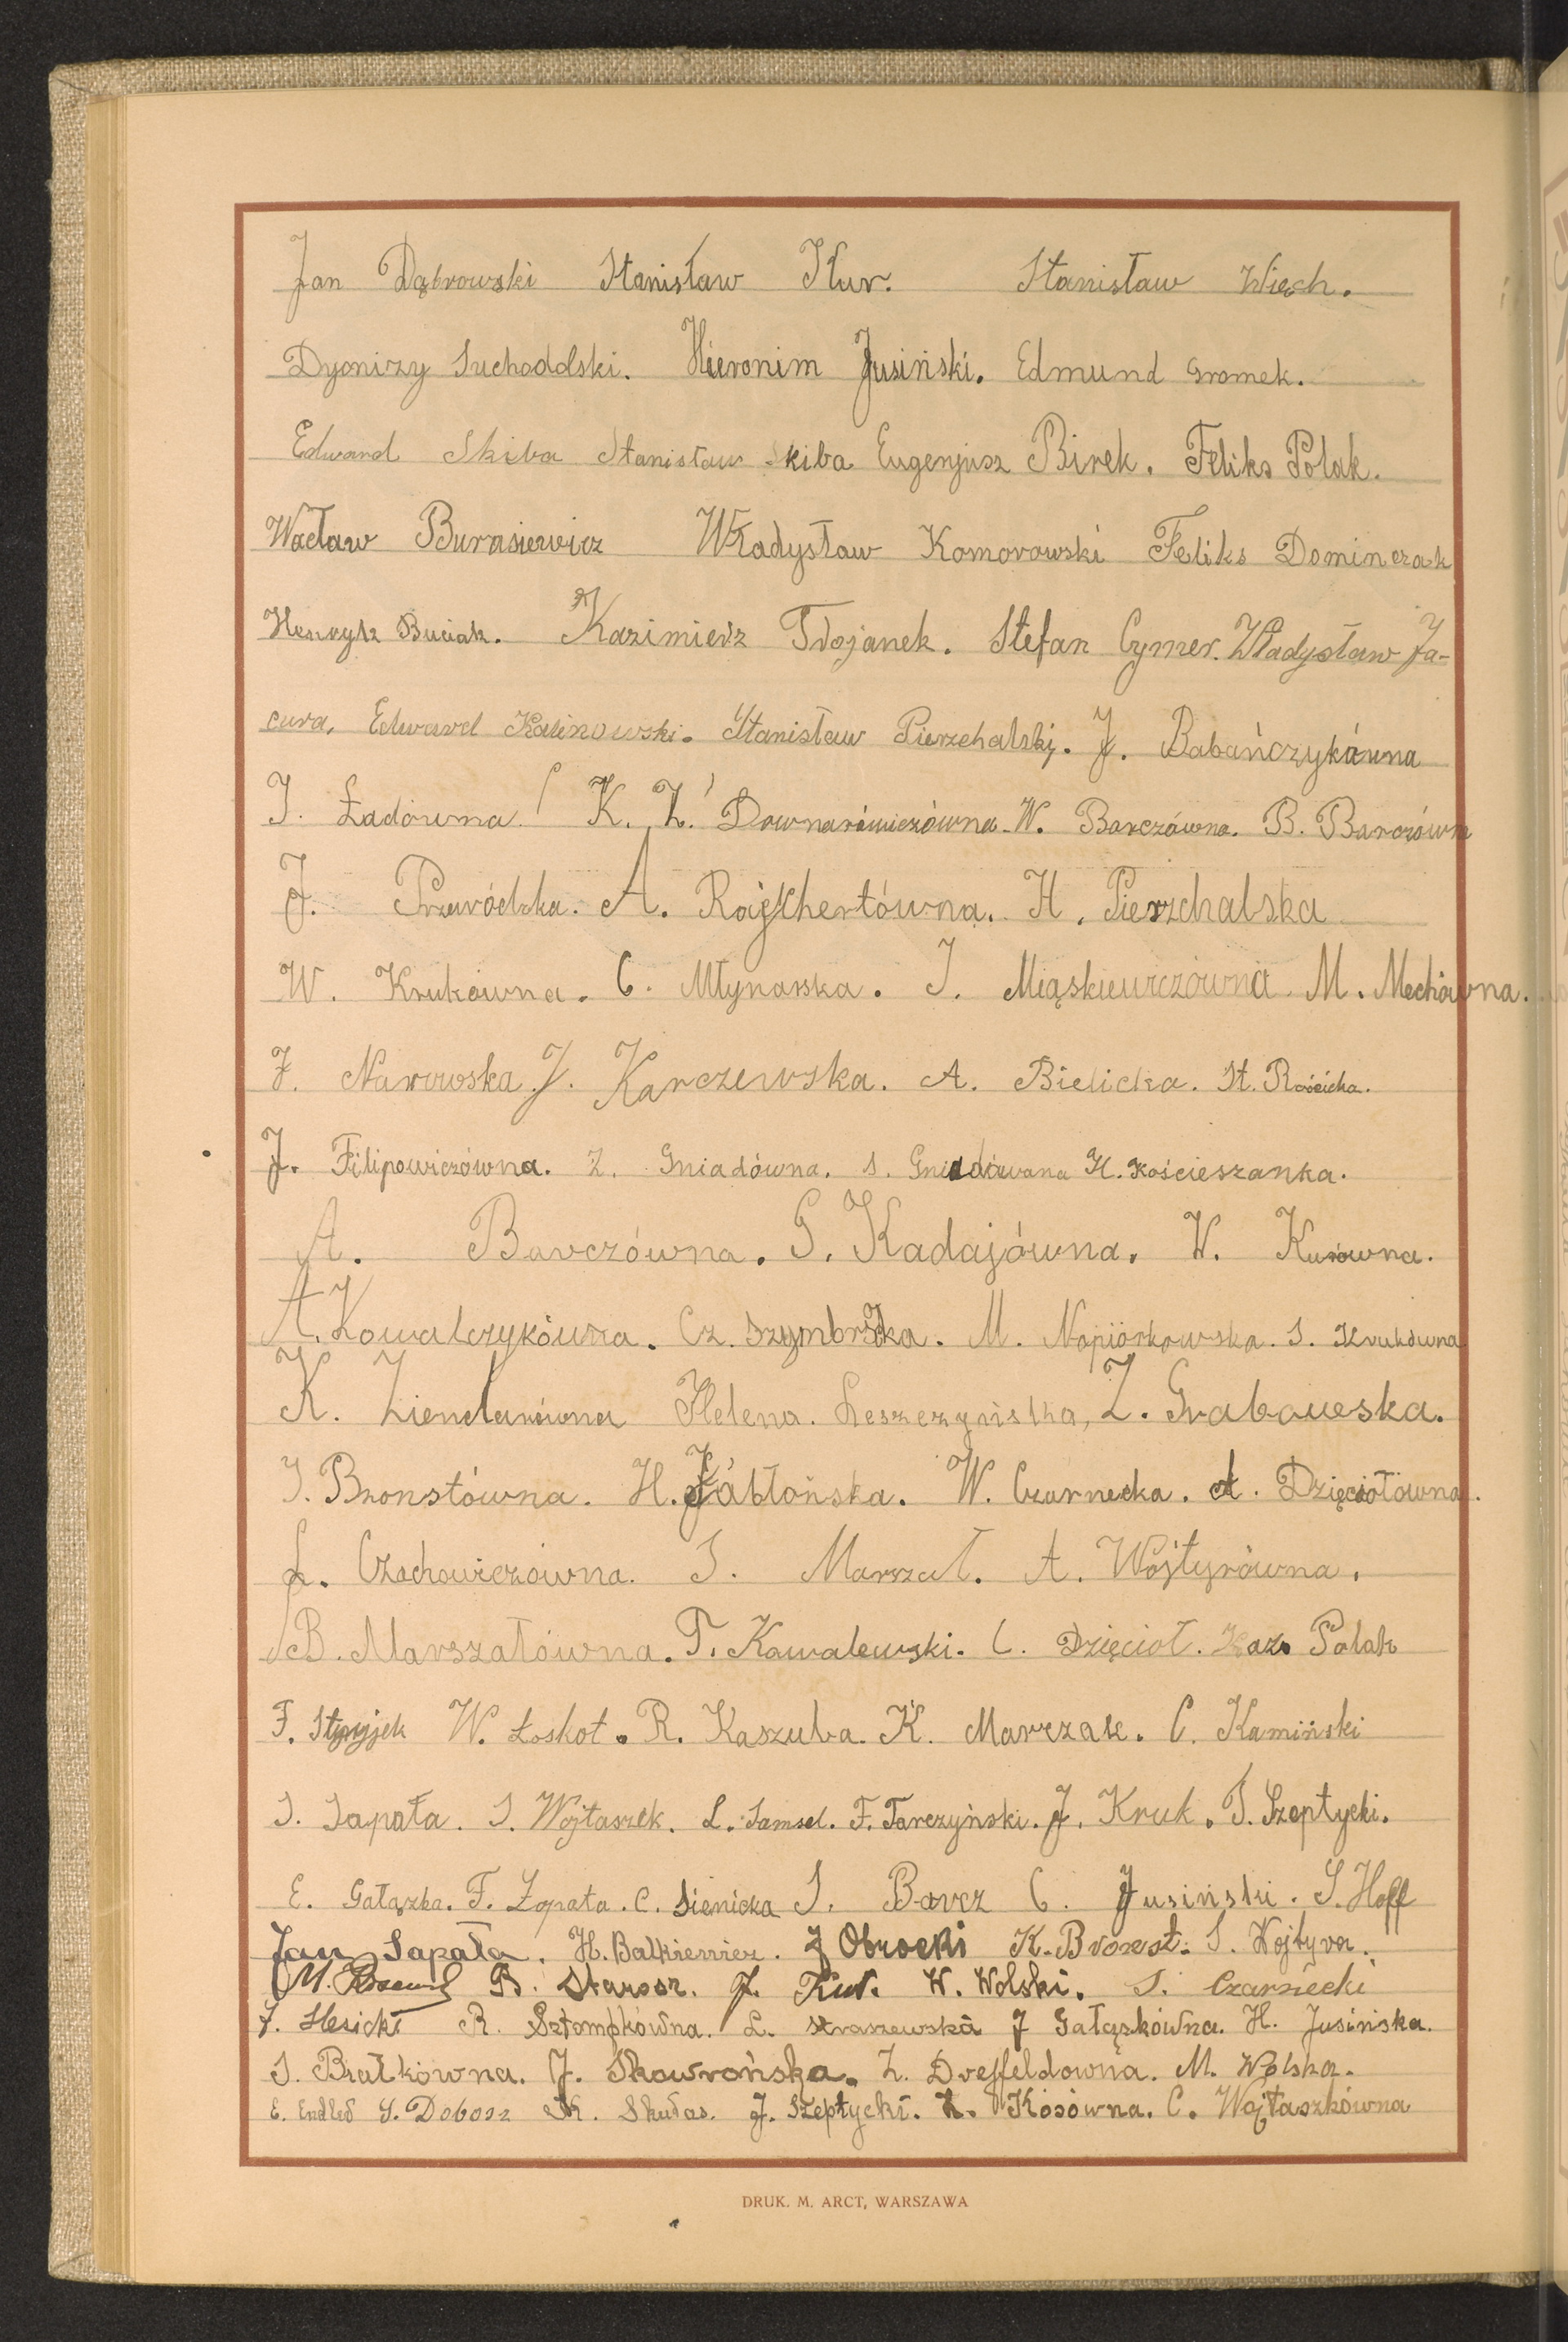 Jan Dąbrowski Stanisław Kur. Stanisław Wiech.
Dyonizy Suchodolski. Hieronim Jusiński. Edmund Gromek.
Edward Skiba Stanisław Skiba Eugenjusz Birek. Feliks Polak.
Wacław Burasiewicz Władysław Komorowski Feliks Dominczak
Henryk Buciak. Kazimierz Trojanek. Stefan Cymer. Władysław Ja-
cura, Edward Kalinowski. Stanisław Pierzchalski. J. Babańczykówna
J. Ładówna K. Z. Downarówiczówna. W. Barczówna. B. Barczówna
J. Przeródzka. A. Rajchertówna. H. Pierzchalska
W. Krukówna. C. Młynarska. J. Miąskiewiczówna M. Mechówna.
J. Narowska J. Karczewska. A. Bielicka. St. Rościcka.
J. Filipowiczówna. Z. Gniadówna. S. Gniadówana H. Kościeszanka.
A. Barczówna. G. Kadajówna. W. Kurówna.
A. Kowalczykówna. Cz. Szymbrska. M. Napiórkowska. S. Krukówna
K. Ziendarówna Helena. Leszczyńska, Z. Graboweska.
J. Bronstówna. H. Jabłońska. W. Czarnecka. A. Dzięciołówna.
L. Czachowiczówna. S. Marszał. A. Wójtyrówna.
B. Marszałówna. T. Kowalewski. C. Dzięcioł. Kaz. Polak
F. Stryjek W. Łoskot. R. Kaszuba. K. Marczak. C. Kamiński
S. Sapała. S. Wojtaszek. L. Samsel. F. Tarczyński. J. Kruk. T. Szeptycki.
E. Gałązka. F. Łopata. C. Sienicka S. Barcz C. Jusiński. S. Hoff
Jan Sapała. H. Balkiewicz. J Obrocki K. Bronst. S. Wojtyra.
M. B. Starosz. J. Kur. W. Wolski. S. Czarnecki
J. Hesicki R. Sztompkówna. L. Straszewska J Gałązkówna. H. Jusińska.
S. Bratkówna. J. Skowrońska. Z. Dreffeldowna. M. Wolska.
E. Endled S. Dobosz K. Skudas. J. Szeptycki. Z. Kosówna. C. Wojtaszkówna
DRUK. M. ARCT, WARSZAWA